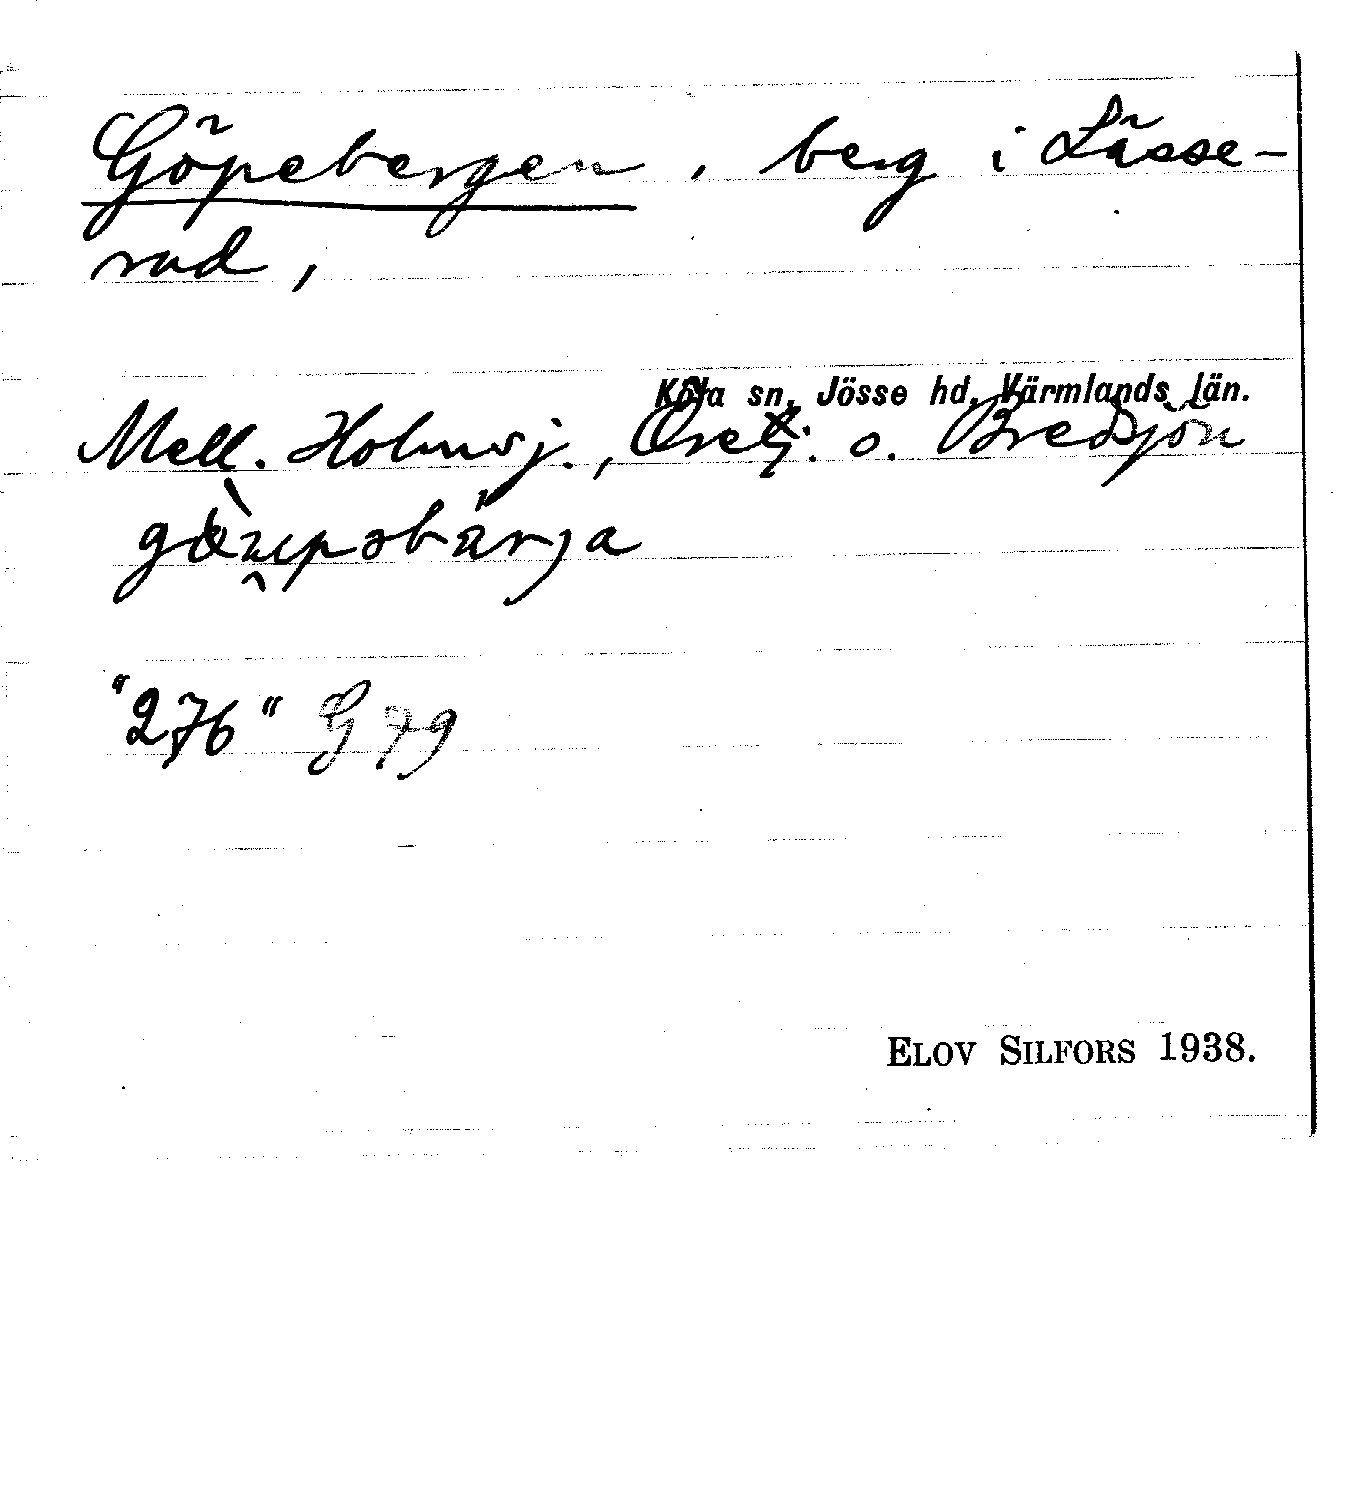 Göpebergen, berg i Lässe-
rud,
Köla sn, Jösse hd, Värmlands län.
Mell. Holmsj., o. Bredsjön
"276" G 79
ELOV SILFORS 1938.